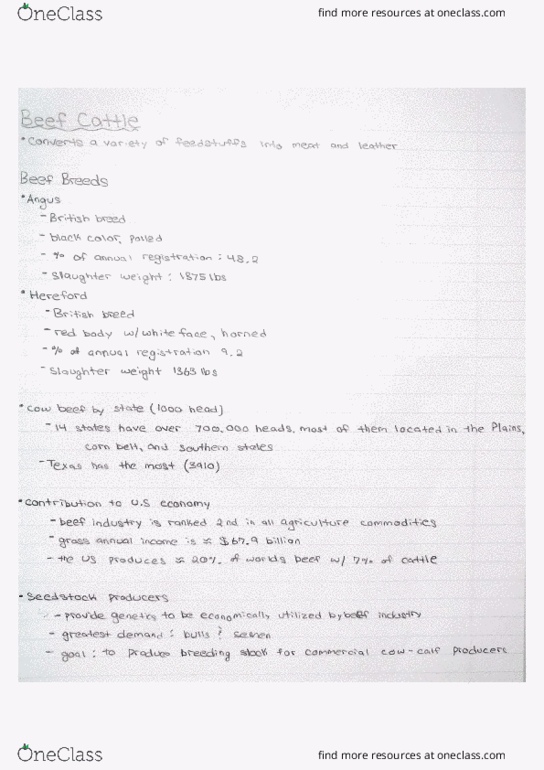 OneClass
find more resources at oneclass.com
Beef Cattle
• Converts a variety of feedstuffs into meat and leather
Beef Breeds
• Angus
- British breed
- black color, polled
- % of annual registration : 48.2
- Slaughter weight : 1875 lbs
• Hereford
- British breed
- red body w/ white face, horned
- % of annual registration 9.2
- Slaughter weight 1363 lbs
• cow beef by state (1000 head)
- 14 states have over 700,000 heads, most of them located in the Plains,
corn belt, and southern states
- Texas has the most (3910)
• contribution to U.S economy
- beef industry is ranked 2nd in all agriculture commodities
- gross annual income is ≈ $67.9 billion
- the US produces ≈ 20% of worlds beef w/ 7% of cattle
• Seedstock producers
- provide genetics to be economically utilized by beef industry
- greatest demand : bulls ? semen
- goal : to produce breeding stock for commercial cow-calf producers
OneClass
find more resources at oneclass.com